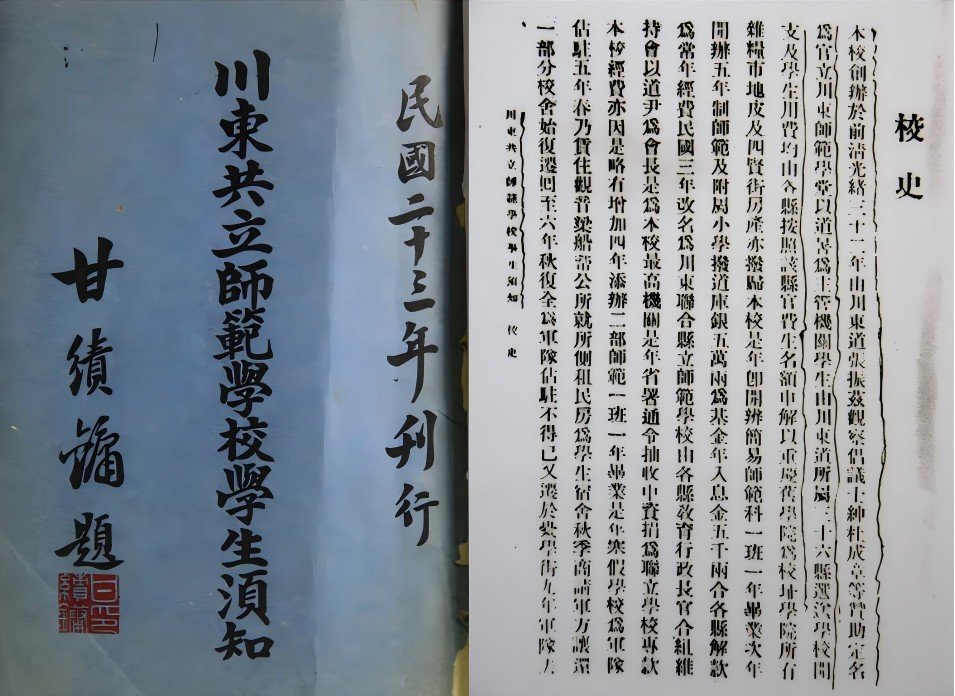 民國二十三年刊行
川東共立師範學校學生須知
甘績鏞題
校史
本校創辦於前清光緒三十二年由川東道張振茲觀察倡議士紳杜成章等贊助定名
爲官立川東師範學堂以道署爲主管機關學生由川東道所屬三十六縣選送學校開
支及學生用費均由各縣按照該縣官費生名額申解以重慶舊學院爲校址學院所有
雜糧市地皮及四賢街房產亦撥歸本校是年卽開辦簡易師範科一班一年畢業次年
開辦五年制師範及附屬小學撥道庫銀五萬兩爲基金年入息金五千兩合各縣解款
爲常年經費民國三年改名爲川東聯合縣立師範學校由各縣敎育行政長官合組維
持會以道尹爲會長是爲本校最高機關是年省署通令抽收中資捐爲聯立學校專款
本校經費亦因是略有增加四年添辦二部師範一班一年畢業是年寒假學校爲軍隊
佔駐五年春乃賃住觀音梁船幫公所就所側租民房爲學生宿舍秋季商請軍方讓還
一部分校舍始復遷囘至六年秋復全爲軍隊佔駐不得已又遷於夫學街九年軍隊
川東共立師範學校學生須知 校史